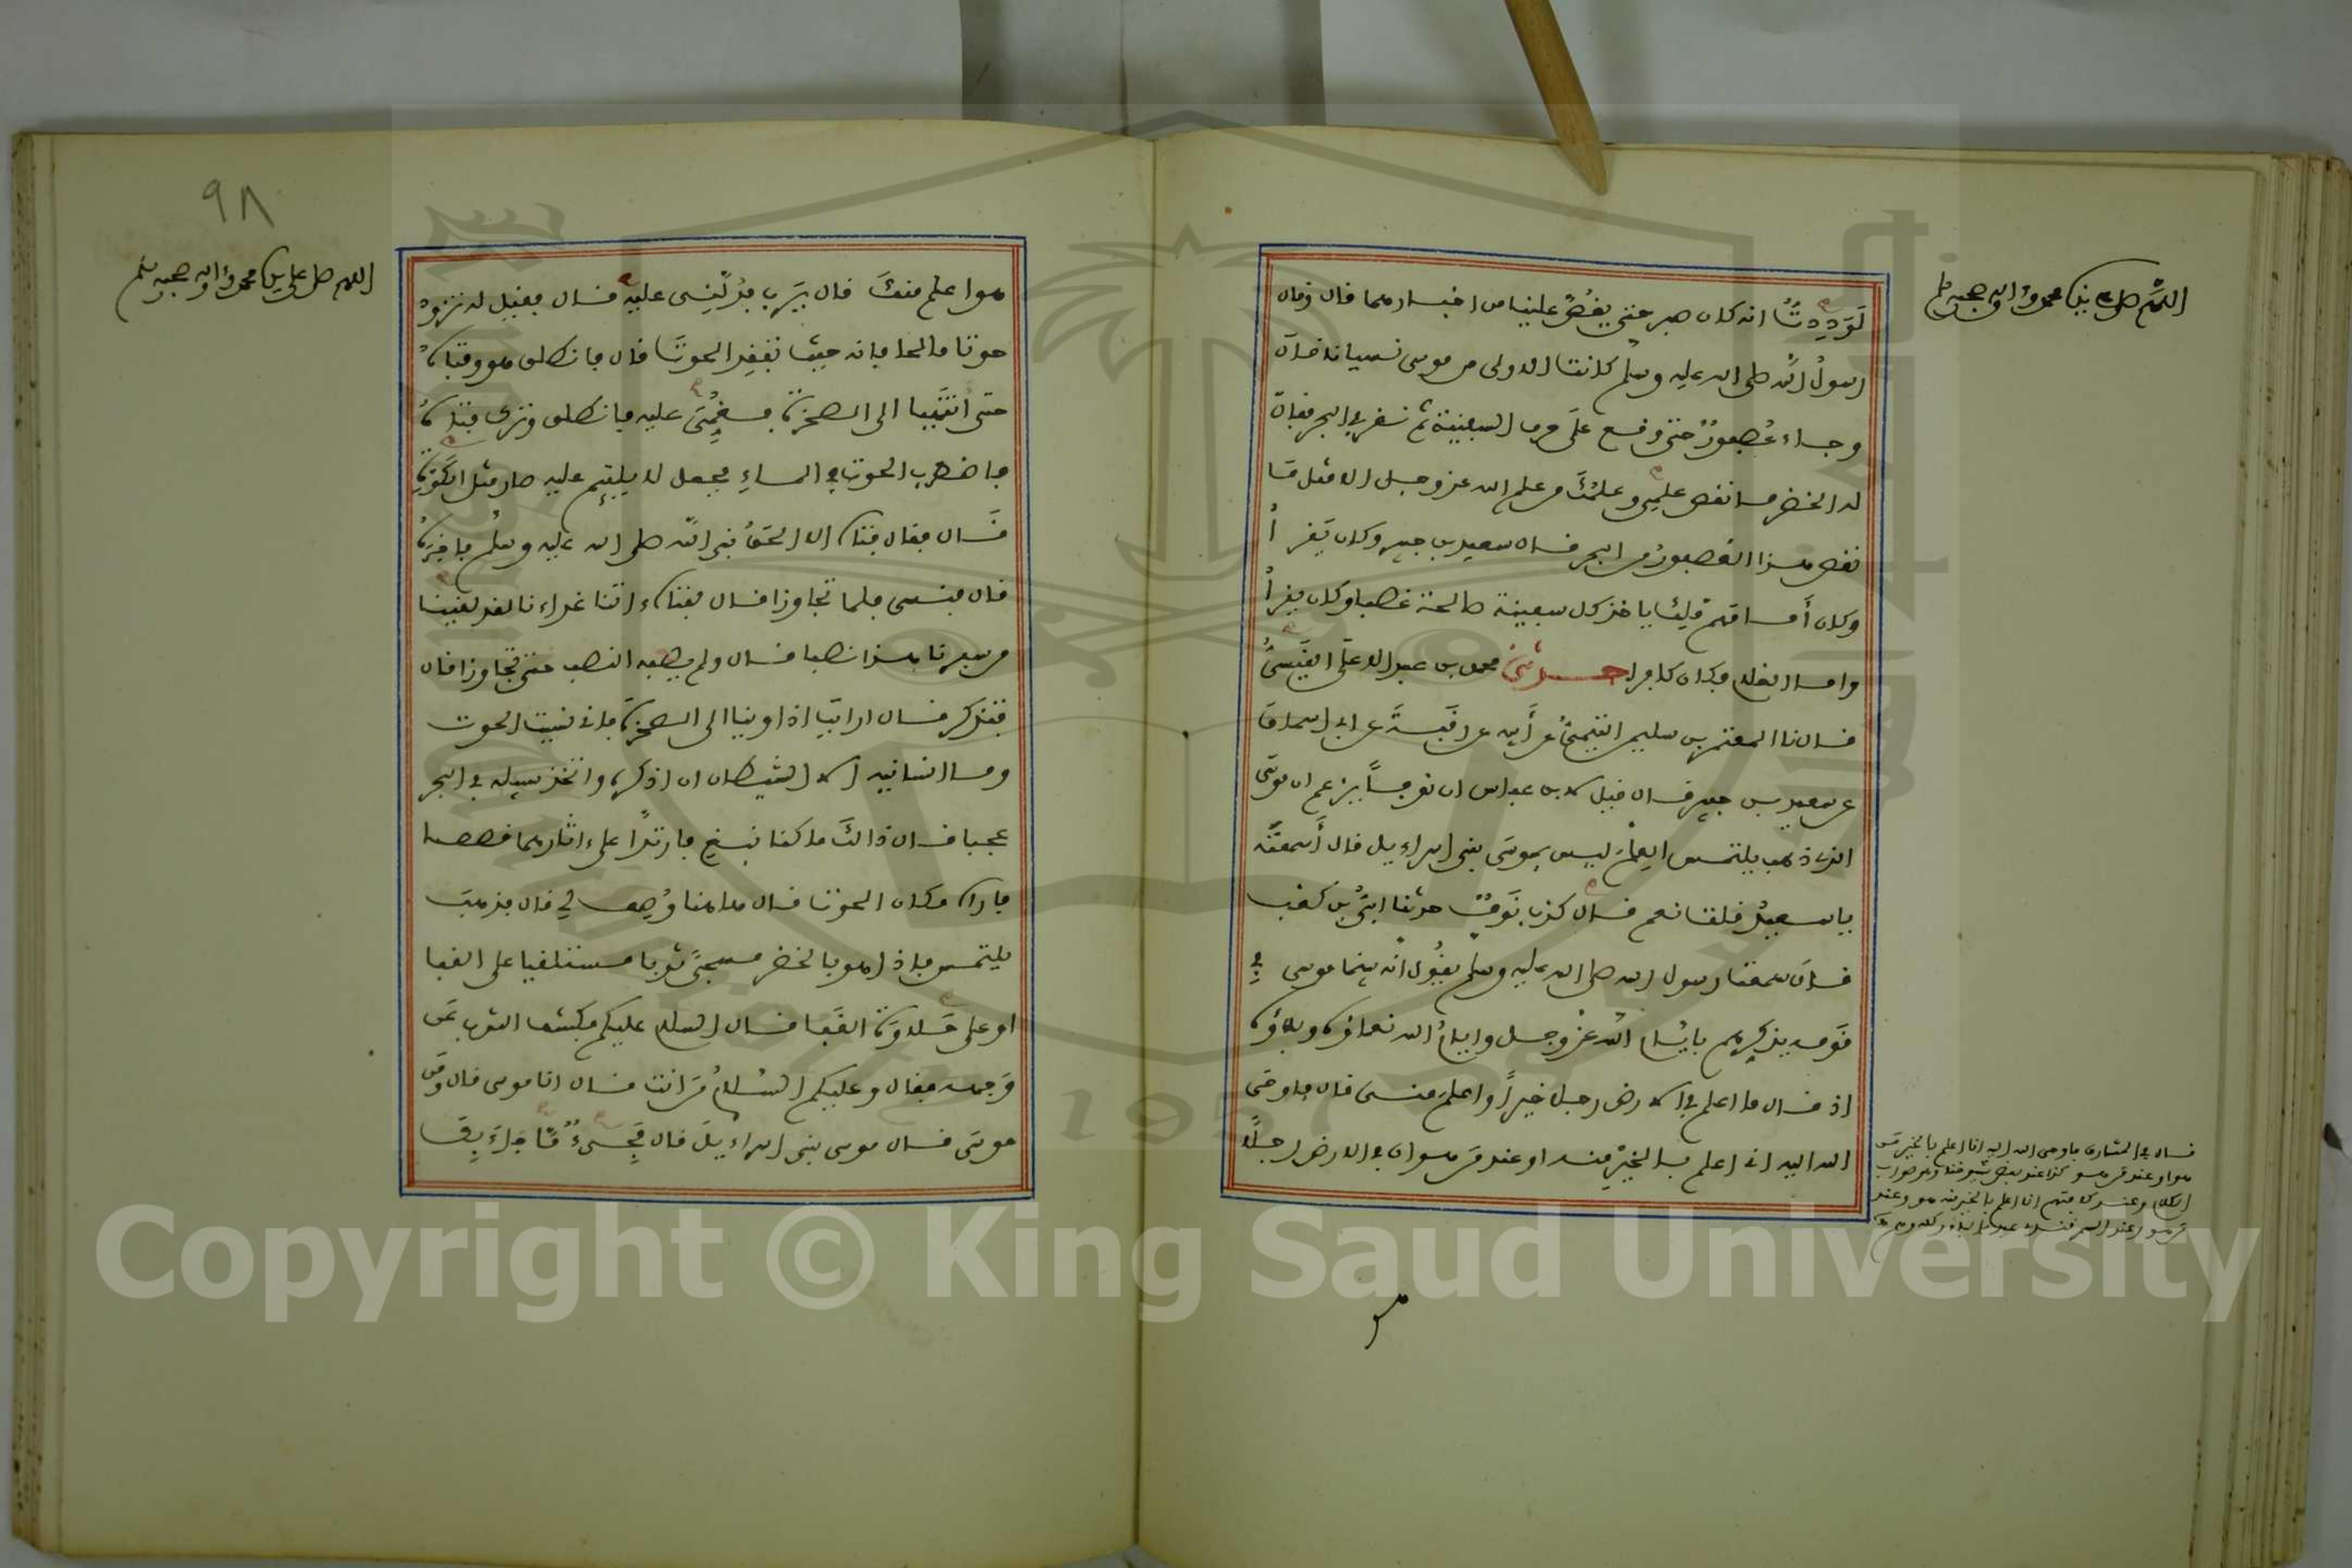 اللهم صل على نبينا محمد وآله وصحبه وسلم
لَوَدِدتُ انه كان صبر حتى يقُصَّ علينا من اخبارهما قال وقال
رسولُ الله صلى الله عليه وسلم كانت الاولى من موسى نسيانا قال
وجاء عُصفورٌ حتى وقع على حرف السفينة ثم نقر في البحر فقال
له الخضر ما نقص علمِي وعلمُكَ من علم الله عز وجل الا مثل ما
نقص هذا العصفورُ من البحر قال سعيد بن جبير وكان يَقرأُ
وكان أَمامَهم مَلِكٌ ياخذ كل سفينة صالحة غصبا وكان يقرأُ
واما الغلام فكان كافرا حدثني محمد بن عبد الاعلى القَيْسىُّ
قال نا المعتمر بن سليمن التيمىُّ عن أَبيه عن رقبةَ عن ابى اسحاق
عن سعيد بن جبير قال قيل لابن عباس ان نوفاً يزعم ان موسَى
الذى ذهب يلتمس العِلمَ ليس بموسَى بنى اسراءيل قال أَسمعتَه
يا سعيدُ قلت نعم قال كذب نَوفٌ حدثنا اُبَىُّ بن كعب
قال سمعت رسول الله صلى الله عليه وسلم يقُول انه بينما موسى في
قَومه يذكرهم بايَّام الله عز وجل وايامُ الله نعماؤه وبلاؤه
اذ قال ما اعلم في الارض رجلا خيراً واعلمَ منى قال فاوحَى
الله اليه انى اعلم بالخيرِ منه او عند مَن هو ان في الارض رجلًا
قال في المشارق فاوحى الله اليه انا اعلم بالخير مَن
هو او عند من هو كذا عند بعض شيوخنا وهو صواب
الكلام وعند كافتهم انا اعلم بالخير منه هو وعند
هو
٩٨
اللهم صل على نبينا محمد وآله وصحبه وسلم
هوا علم منكَ قال يَرَب فدُلَّنِى عليه قال فقيل له تزودْ
حوتا مالحا فانه حيث تفقِد الحوتَ قال فانطلق هو وفتاهُ
حتى انتَهيا الى الصخرةِ فعُمِّىَ عليه فانطلق وترك فتاهُ
فاضطرب الحوت في الماءِ فجعل لا يلتئِم عليه صار مثل الكَوَّةِ
قَال فقال فتاه الا اَلحقُ نبى الله صلى الله عليه وسلم فاخبِرَهُ
قال فنسى فلما تجاوزا قال لفتاه ءاتنا غداءنا لقد لقينا
من سفرنا هذا نصبا قال ولم يصبه النصب حتى تجاوزا قال
فتذكر قال ارايتَ اذ اوينا الى الصخرةِ فانى نسيت الحوت
وما انسانيه الا الشيطان ان اذكره واتخذ سبيله في البحر
عجبا قال ذالكَ ما كنا نبغِ فارتدَّا على ءاثارهما قصصا
فاراه مكان الحوت قال هاهنا وُصِف لِي قال فذهبَ
يلتمس فاذا هو بالخضر مسجىًّ ثوبا مستلقيا على القفا
او على حَلاوَةِ القَفا قال السلام عليكم فكشف الثوب عَن
وَجهه فقال وعليكم السلامُ مَن انت قال انا موسى قال ومَن
موسَى قال موسى بنى اسراءيلَ قال مَجِىءٌ مَّا جَاءَ بِكَ